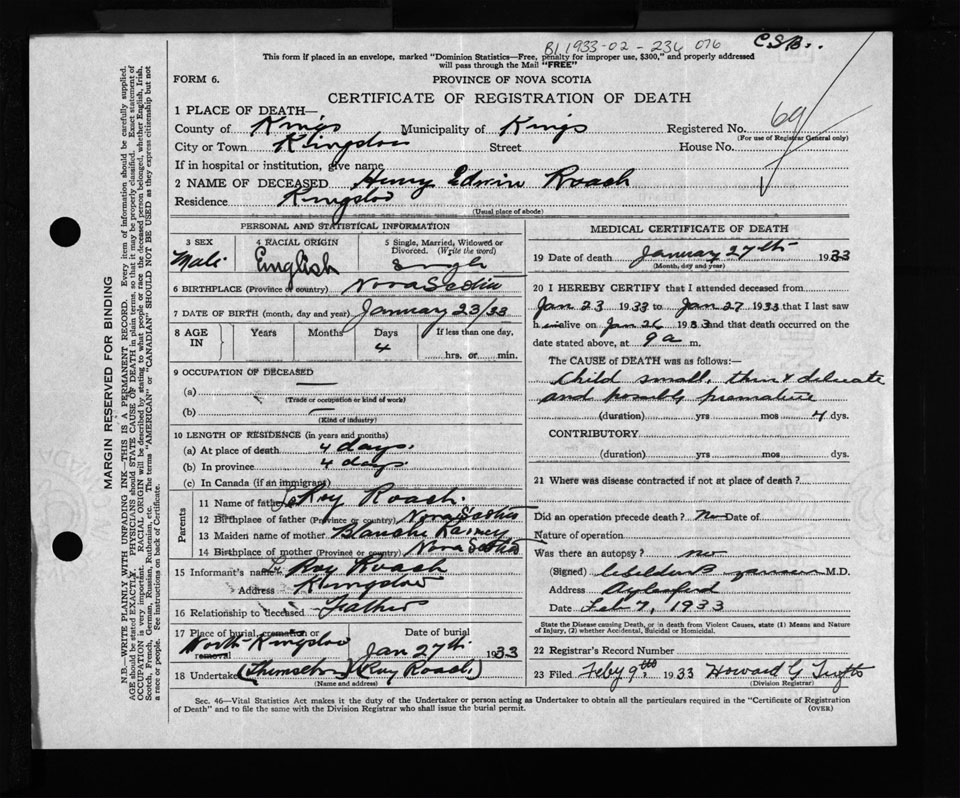 B1 1933-02-236 076
C.S.B..
This form if placed in an envelope, marked "Dominion Statistics—Free, penalty for improper use, $300," and properly addressed
will pass through the Mail "FREE"
FORM 6. PROVINCE OF NOVA SCOTIA
CERTIFICATE OF REGISTRATION OF DEATH
1 PLACE OF DEATH—
County of Kings Municipality of Kings Registered No. 69
(For use of Registrar General only)
City or Town Kingston Street House No.
If in hospital or institution, give name
2 NAME OF DECEASED Henry Edwin Roach
Residence Kingston
(Usual place of abode)
PERSONAL AND STATISTICAL INFORMATION
3 SEX 4 RACIAL ORIGIN 5 Single, Married, Widowed or Divorced. (Write the word)
Male English Single
6 BIRTHPLACE (Province or country) Nova Scotia
7 DATE OF BIRTH (month, day and year) January 23/33
8 AGE IN Years Months Days If less than one day,
4 hrs. or min.
9 OCCUPATION OF DECEASED
(a) —
(Trade or occupation or kind of work)
(b) —
(Kind of industry)
10 LENGTH OF RESIDENCE (in years and months)
(a) At place of death 4 days.
(b) In province 4 days.
(c) In Canada (if an immigrant)
Parents
11 Name of father LeRoy Roach.
12 Birthplace of father (Province or country) Nova Scotia
13 Maiden name of mother Blanche
14 Birthplace of mother (Province or country) Nova Scotia
15 Informant's name Le Roy Roach
Address Kingston
16 Relationship to deceased Father
17 Place of burial, cremation or removal Date of burial
North Kingston Jan 27th 1933
18 Undertaker (Themselves) (Roy Roach)
(Name and address)
MEDICAL CERTIFICATE OF DEATH
19 Date of death January 27th 1933
(Month, day and year)
20 I HEREBY CERTIFY that I attended deceased from
Jan 23 1933 to Jan 27 1933 that I last saw
him alive on Jan 26 1933 and that death occurred on the
date stated above, at 9 a m.
The CAUSE of DEATH was as follows:—
Child small, thin & delicate
and possibly premature
(duration) yrs mos 4 dys.
CONTRIBUTORY
(duration) yrs mos dys.
21 Where was disease contracted if not at place of death?
Did an operation precede death? No Date of
Nature of operation
Was there an autopsy? No
(Signed) M.D.
Address Aylesford
Date Feb 7, 1933
State the Disease causing Death, or in death from Violent Causes, state (1) Means and Nature
of Injury, (2) whether Accidental, Suicidal or Homicidal.
22 Registrar's Record Number
23 Filed Feby 9th 1933 Howard G
(Division Registrar)
Sec. 46—Vital Statistics Act makes it the duty of the Undertaker or person acting as Undertaker to obtain all the particulars required in the "Certificate of Registration
of Death" and to file the same with the Division Registrar who shall issue the burial permit. (OVER)
MARGIN RESERVED FOR BINDING
N.B.—WRITE PLAINLY WITH UNFADING INK—THIS IS A PERMANENT RECORD. Every item of information should be carefully supplied.
AGE should be stated EXACTLY. PHYSICIANS should STATE CAUSE OF DEATH in plain terms, so that it may be properly classified. Exact statement of
OCCUPATION is very important. RACIAL ORIGIN will be described by stating to what people or race the deceased person belonged, whether English, Irish,
Scotch, French, German, Russian, Ruthenian, etc. The terms "AMERICAN" or "CANADIAN" SHOULD NOT BE USED as they express citizenship but not
a race or people. See instructions on back of Certificate.